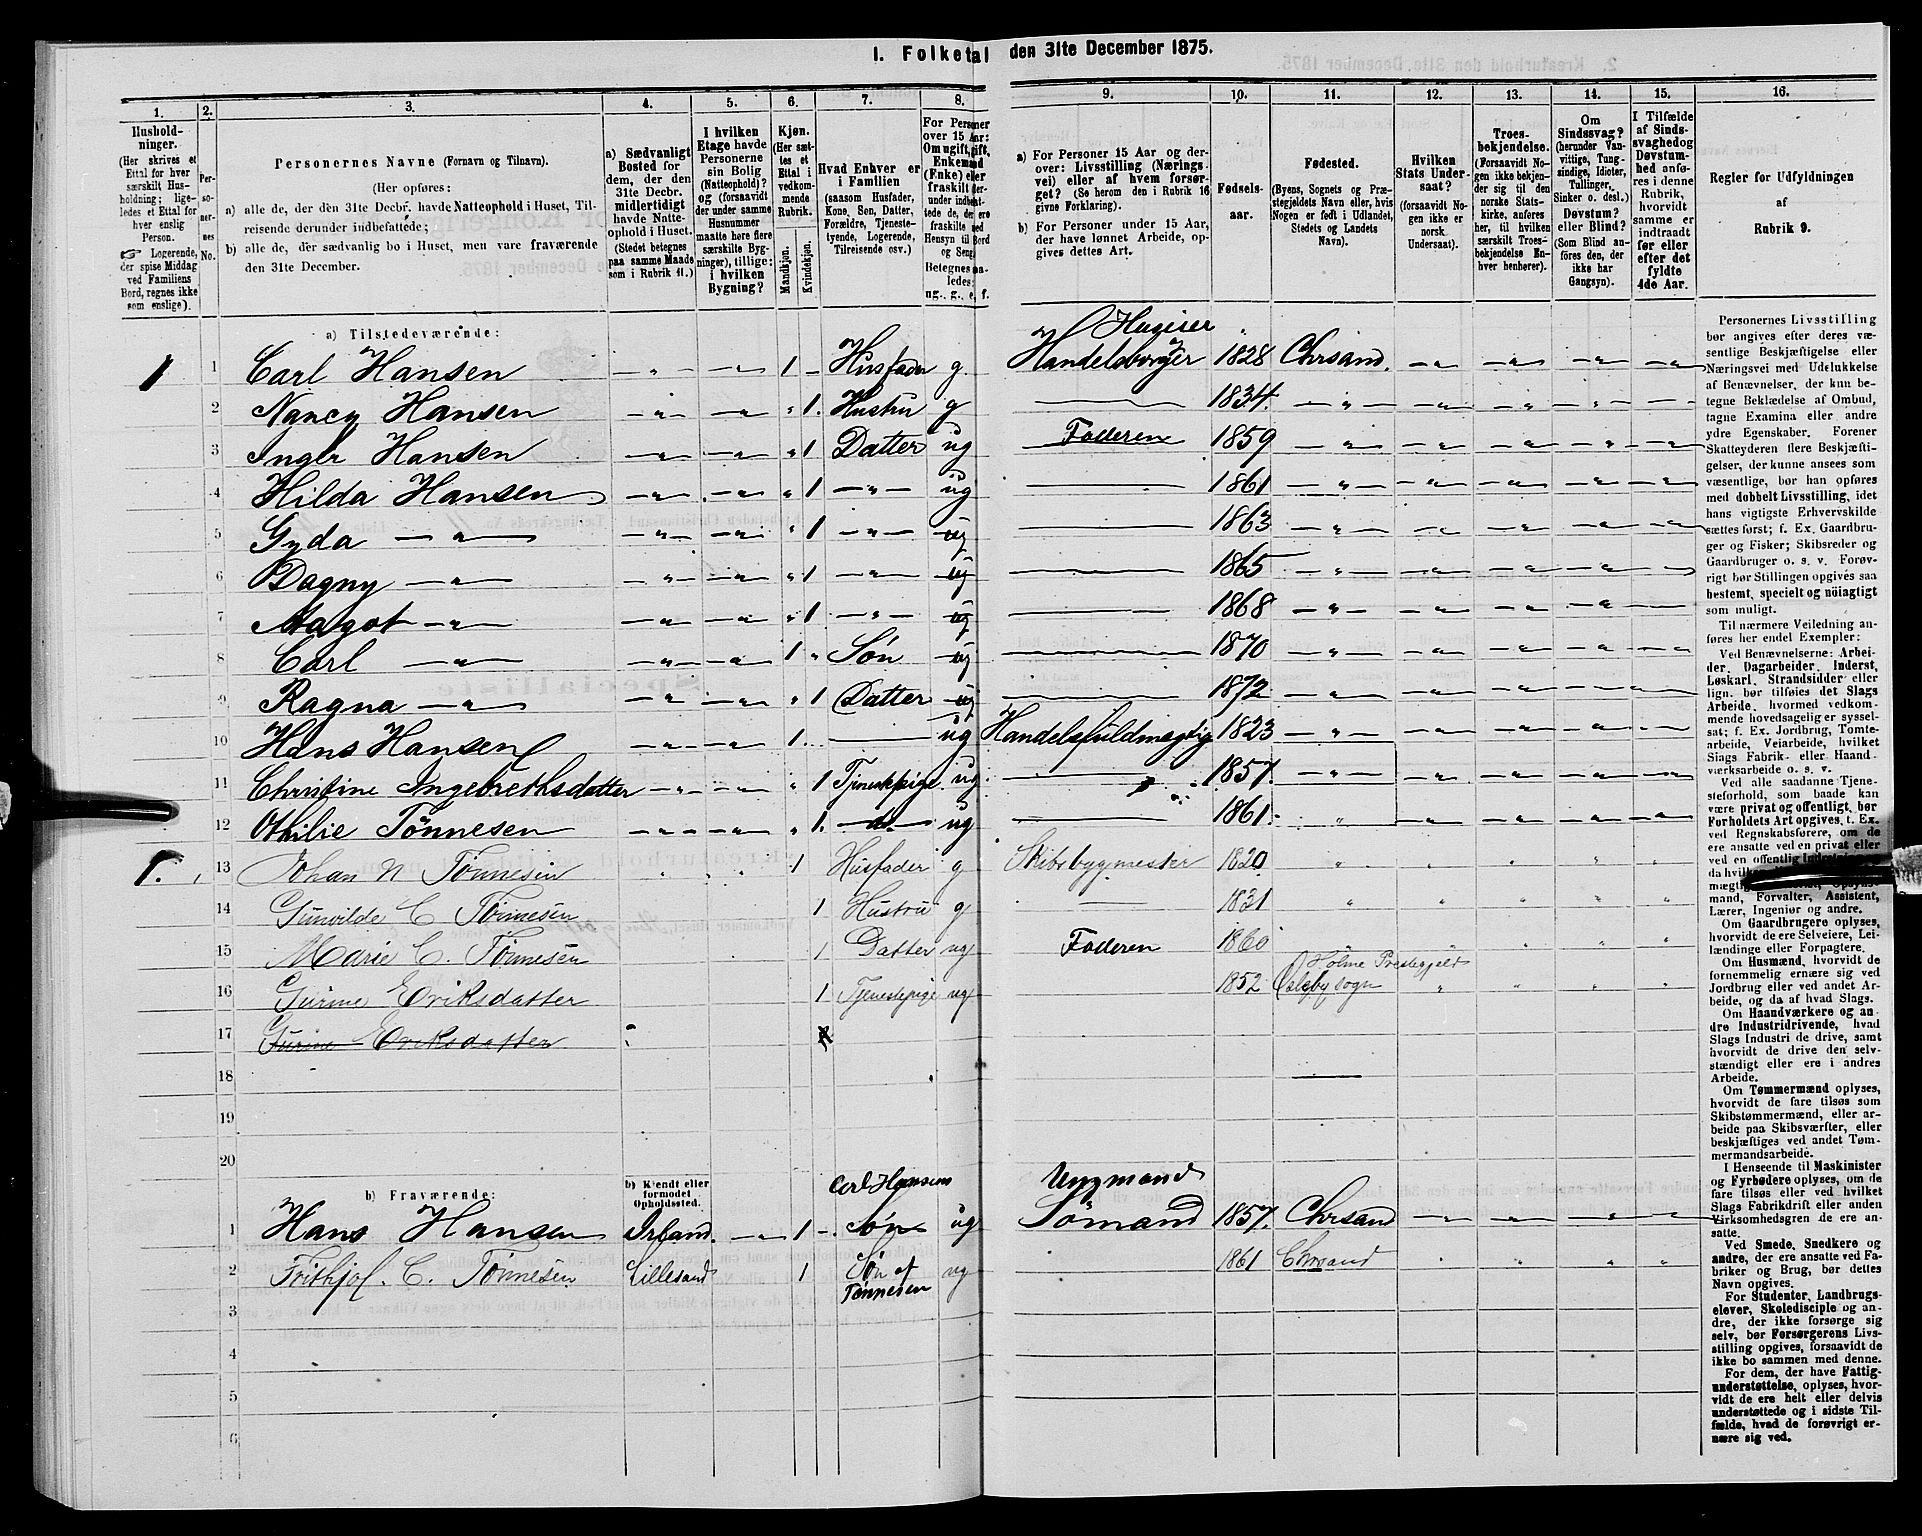 1. Folketal den 31te December 1875.
1. 2. 3. 4. 5. 6. 7. 8. 9. 10. 11. 12. 13. 14. 15. 16.
Hushold-
ninger.
(Her skrives et
Ettal for hver
særskilt Hus-
holdning; lige-
ledes et Ettal for
hver enslig
Person.
Logerende,
der spise Middag
ved Familiens
Bord, regnes ikke
som enslige).
Per-
so-
ner-
nes
No.
Personernes Navne (Fornavn og Tilnavn).
(Her opføres:
a) alle de, der den 31te Decbr. havde Natteophold i Huset, Til-
reisende derunder indbefattede;
b) alle de, der sædvanlig bo i Huset, men vare fraværende
den 31te December.
a) Sædvanligt
Bosted for
dem, der den
31te Decbr.
midlertidigt
havde Natte-
ophold i Huset.
(Stedet betegnes
paa samme Maade
som i Rubrik 11.)
I hvilken
Etage havde
Personerne
sin Bolig
(Natteophold)?
og (forsaavidt
der under samme
Husnummer
maatte høre flere
særskilte Byg-
ninger), tillige:
i hvilken
Bygning?
Kjøn.
(Her sæt-
tes et
Ettal i
vedkom-
mende
Rubrik.
Mandkjøn.
Kvindekjøn.
Hvad Enhver er
i Familien
(saasom Husfader,
Kone, Søn, Datter,
Forældre, Tjeneste-
tyende, Logerende,
Tilreisende osv.)
For Personer
over 15 Aar:
Om ugift, gift,
Enkemand
(Enke) eller
fraskilt
Betegnes saa-
ledes:
ug., g., e, f.
a) For Personer 15 Aar og der-
over: Livsstilling (Nærings-
vei) eller af hvem forsør-
get? (Se herom den i Rubrik 16
givne Forklaring).
b) For Personer under 15 Aar,
der have lønnet Arbeide, op-
gives dettes Art.
Fødsels-
aar.
Fødested.
(Byens, Sognets og Præ-
stegjeldets Navn eller, hvis
Nogen er født i Udlandet,
Stedets og Landets
Navn).
Hvilken
Stats Under-
saat?
(forsaavidt No-
gen ikke er
norsk
Undersaat).
Troes-
bekjendelse.
(Forsaavidt No-
gen ikke bekjen-
der sig til den
norske Stats-
kirke, anføres
her, til hvilken
særskilt Troes-
bekjendelse En-
hver henhører).
Om
Sindssvag?
(herunder Van-
vittige, Tung-
sindige, Idioter,
Tullinger,
Sinker o. desl.)
Døvstum?
eller Blind?
(Som Blind an-
føres den, der
ikke har
Gangsyn).
I Tilfælde
af Sinds-
svaghed og
Døvstum-
hed anfø-
res i denne
Rubrik,
hvorvidt
samme er
indtraadt
før eller
efter det
fyldte
4de Aar.
Regler for Udfyldningen
af
Rubrik 9.
a) Tilstedeværende:
Hugeier
1 1 Carl Hansen 1 Husfader g. Handelsborger 1828 Chrsand.
2 Nancy Hansen 1. Hustru g 1834.
3 Inger Hansen 1 Datter ug Faderen 1859
4 Hilda Hansen 1 ug 1861
5 Gyda 1 ug 1863
6 Dagny 1 ug 1865
7 Magot 1 ug 1868
8 Carl 1 Søn ug 1870
9 Ragna 1 Datter ug 1872
10 Hans Hansen 1 ug Handelsfuldmægtig 1823
11 Christine Ingebrethsdatter 1 Tjenestpige ug. 1857.
12 Othilie Tönnesen 1. do ug 1861.
1. 13 Johan N Tönnesen 1 Husfader g Skibsbygmester 1820
14 Gunvilde C Tönnesen 1 Hustru g 1831
15 Marie C. Tönnesen 1 Datter ug Faderen 1860
Holme Prestegjeld
16 Gurine Eriksdatter 1 Tjenestpige ug 1852 Øslebysogn
17 Gurine Eriksdatter
18
19
20
b) Fraværende:
b) Kjendt eller
formodet
Opholdssted.
Carl Hansens
Ungmand
1 Hans Hansen Irland. 1 Søn ug Sömand 1857. Chrsand
2 Frithjof. C. Tönnesen Lillesand 1 Søn af ug 1861 Chrsand
Tönnesen
3
4
5
6
Personernes Livsstilling
bør angives efter deres væ-
sentlige Beskjæftigelse eller
Næringsvei med Udelukkelse
af Benævnelser, der kun be-
tegne Beklædelse af Ombud,
tagne Examina eller andre
ydre Egenskaber. Forener
Skatteyderen flere Beskjæfti-
gelser, der kunne ansees som
væsentlige, bør han opføres
med dobbelt Livsstilling, idet
hans vigtigste Erhvervskilde
sættes først; f. Ex. Gaardbru-
ger og Fisker; Skibsreder og
Gaardbruger o. s. v. Forøv-
rigt bør Stillingen opgives saa
bestemt, specielt og nöiagtigt
som muligt.
Til nærmere Veiledning an-
føres her endel Exempler:
Ved Benævnelserne: Arbei-
der, Dagarbeider, Inderst,
Løskarl, Strandsidder eller
lign. bør tilføies det Slags
Arbeide, hvormed vedkom-
mende hovedsagelig er syssel-
sat; f. Ex. Jordbrug, Tomte-
arbeide, Veiarbeide, hvilket
Slags Fabrik- eller Haand-
værksarbeide o. s. v.
Ved alle saadanne Tjene-
steforhold, som baade kan
være privat og offentligt, bør
Forholdets Art opgives, t. Ex.
ved Regnskabsførere, om de
ere ansatte ved en privat eller
ved en offentlig
mand, Forvalter, Assistent,
Lærer, Ingeniør og andre.
Om Gaardbrugere oplyses,
hvorvidt de ere Selveiere, Lei-
lændinge eller Forpagtere.
Om Husmænd, hvorvidt de
fornemmelig ernære sig ved
Jordbrug eller ved andet Ar-
beide, og da af hvad Slags.
Om Haandværkere og an-
dre Industridrivende, hvad
Slags Industri de drive, samt
hvorvidt de drive den selv-
stændigt eller ere i andres
Arbeide.
Om Tømmermænd oplyses,
hvorvidt de fare tilsøs som
Skibstømmermænd, eller ar-
beide paa Skibsværfter, eller
beskjæftiges ved andet Tøm-
mermandsarbeide.
I Henseende til Maskinister
og Fyrbødere oplyses, om de
fare tilsøs eller ved hvilket
Slags Fabrikdrift eller anden
Virksomhedsgren de ere an-
satte.
Ved Smede, Snedkere og
andre, der ere ansatte ved Fa-
briker og Brug, bør dettes
Navn opgives.
For Studenter, Landbrugs-
elever, Skoledisciple og an-
dre, der ikke forsørge sig
selv, bør Forsørgerens Livs-
stilling opgives, forsaavidt de
ikke bo sammen med denne.
For dem, der have Fattig-
understøttelse, oplyses, hvor-
vidt de ere helt eller delvis
understøttede og i sidste Til-
fælde, hvad de forøvrigt er-
nære sig ved.